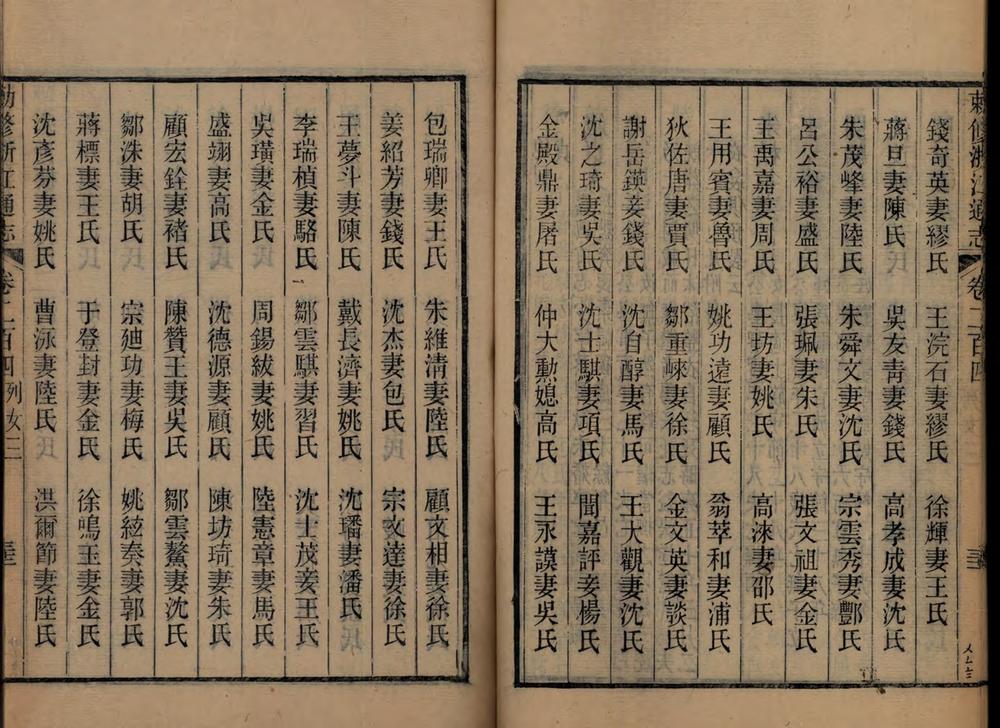 敕修浙江通志 卷二百四
錢奇英妻繆氏 王浣石妻繆氏 徐輝妻王氏
蔣旦妻陳氏 吳友青妻錢氏 高孝成妻沈氏
朱茂峰妻陸氏 朱舜文妻沈氏 宗雲秀妻酆氏
呂公裕妻盛氏 張珮妻朱氏 張文祖妻金氏
王禹嘉妻周氏 王坊妻姚氏 高淶妻邵氏
王用賓妻魯氏 姚功遠妻顧氏 翁萃和妻浦氏
狄佐唐妻賈氏 鄒重崍妻徐氏 金文英妻談氏
謝岳鍈妾錢氏 沈自醇妻馬氏 王大觀妻沈氏
沈之琦妻吳氏 沈士騏妻項氏 聞嘉評妾楊氏
金殿鼎妻屠氏 仲大勲媳高氏 王永謨妻吳氏
包瑞卿妻王氏 朱維清妻陸氏 顧文相妻徐氏
姜紹芳妻錢氏 沈杰妻包氏 宗文達妻徐氏
王夢斗妻陳氏 戴長濟妻姚氏 沈璠妻潘氏
李瑞楨妻駱氏 鄒雲騏妻習氏 沈士茂妾王氏
吳璜妻金氏 周錫紱妻姚氏 陸憲章妻馬氏
盛翊妻高氏 沈德源妻顧氏 陳坊琦妻朱氏
顧宏銓妻褚氏 陳贊王妻吳氏 鄒雲鰲妻沈氏
鄒洙妻胡氏 宗廸功妻梅氏 姚絃奏妻郭氏
蔣標妻王氏 于登封妻金氏 徐鳴玉妻金氏
沈彥芬妻姚氏 曹泳妻陸氏 洪爾節妻陸氏
勅修浙江通志 卷二百四 列女三